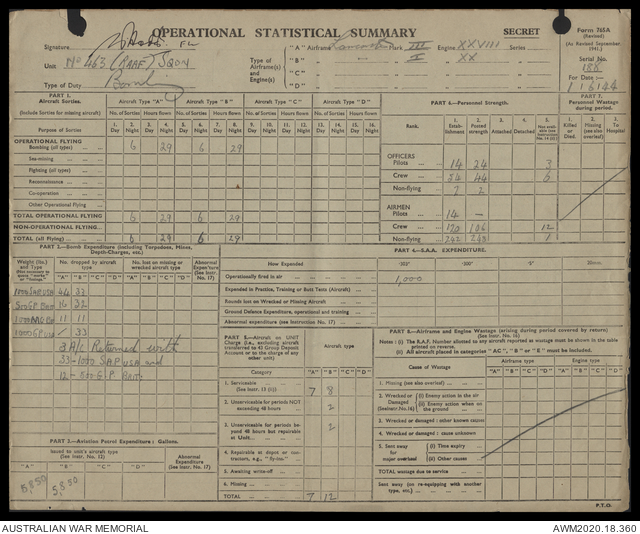 OPERATIONAL STATISTICAL SUMMARY
SECRET
Form 765A
(Revised)
(As Revised September 1941.)
Signature
Unit No 463 (RAAF) SQDN
Type of Duty Bombing
Type of Airframe(s) and Engine(s)
"A" Airframe Lancaster Mark III Engine XXVIII Series
"B" I XX
"C"
"D"
Serial No. 188
For Date :—
1 6 44
PART 1.
Aircraft Sorties.
(Include Sorties for missing aircraft)
Aircraft Type "A" Aircraft Type "B" Aircraft Type "C" Aircraft Type "D"
No. of Sorties Hours flown No. of Sorties Hours flown No. of Sorties Hours flown No. of Sorties Hours flown
Purpose of Sorties
1. Day 2. Night 3. Day 4. Night 5. Day 6. Night 7. Day 8. Night 9. Day 10. Night 11. Day 12. Night 13. Day 14. Night 15. Day 16. Night
OPERATIONAL FLYING
Bombing (all types) 6 29 6 29
Sea-mining
Fighting (all types)
Reconnaissance
Co-operation
Other Operational Flying
TOTAL OPERATIONAL FLYING 6 29 6 29
NON-OPERATIONAL FLYING
TOTAL (all Flying) 6 29 6 29
PART 6.—Personnel Strength.
Rank.
1. Establishment 2. Posted strength 3. Attached 4. Detached 5. Non available
OFFICERS
Pilots 14 24 3
Crew 44 6
Non-flying 7 2
AIRMEN
Pilots 14 —
Crew 106 12
Non-flying 1
PART 7.
Personnel Wastage during period.
1. Killed or Died. 2. Missing (see also overleaf) 3. To Hospital
PART 2.—Bomb Expenditure (including Torpedoes, Mines, Depth-Charges, etc.)
Weight (lbs.) and Type
No. dropped by aircraft type
No. lost on missing or wrecked aircraft type
Abnormal Expenditure (See Instr. 17)
"A" "B" "C" "D" "A" "B" "C" "D"
1000 SAP USA 44 33
500 GP Brit 16 32
1000 MC Brit 11 11
1000 GP USA / 33
3 A/C Returned with
33 - 1000 SAP USA and
12 - 500 G.P Brit.
PART 3.—Aviation Petrol Expenditure : Gallons.
Issued to unit's aircraft type (See Instr. 12)
Abnormal Expenditure (See Instr. 17)
"A" "B" "C" "D"
5,850 5,850
PART 4.—S.A.A. EXPENDITURE.
How Expended
·303" ·300" ·5" 20mm.
Operationally fired in air 1,000
Expended in Practice, Training or Butt Tests (Aircraft)
Rounds lost on Wrecked or Missing Aircraft
Ground Defence Expenditure, operational and training
Abnormal expenditure (see Instruction No. 17)
PART 5.—Aircraft on UNIT Charge (i.e., excluding aircraft transferred to 43 Group Deposit Account or to the charge of any other unit)
Aircraft type
Category "A" "B" "C" "D"
1. Serviceable (See Instr. 13 (ii)) 7 8
2. Unserviceable for periods NOT exceeding 48 hours 2
3. Unserviceable for periods beyond 48 hours but repairable at Unit 2
4. Repairable at depot or contractors, e.g., "fly-ins."
5. Awaiting write-off
6. Missing
TOTAL 7 12
PART 8.—Airframe and Engine Wastage (arising during period covered by return) (See Instr. 16)
Notes : (i) The R.A.F. Number allotted to any aircraft reported as wastage must be shown in the table printed on reverse.
(ii) All aircraft placed in categories "AC," "B" or "E" must be included.
Cause of Wastage
Airframe type Engine type
"A" "B" "C" "D" "A" "B" "C" "D"
1. Missing (see also overleaf)
2. Wrecked or Damaged (See Instr. No.16)
(i) Enemy action in the air
(ii) Enemy action when on the ground
3. Wrecked or damaged : other known causes
4. Wrecked or damaged : cause unknown
5. Sent away for major overhaul
(i) Time expiry
(ii) Other causes
TOTAL wastage due to service
Sent away (on re-equipping with another type, etc.)
P.T.O.
AUSTRALIAN WAR MEMORIAL
AWM2020.18.360